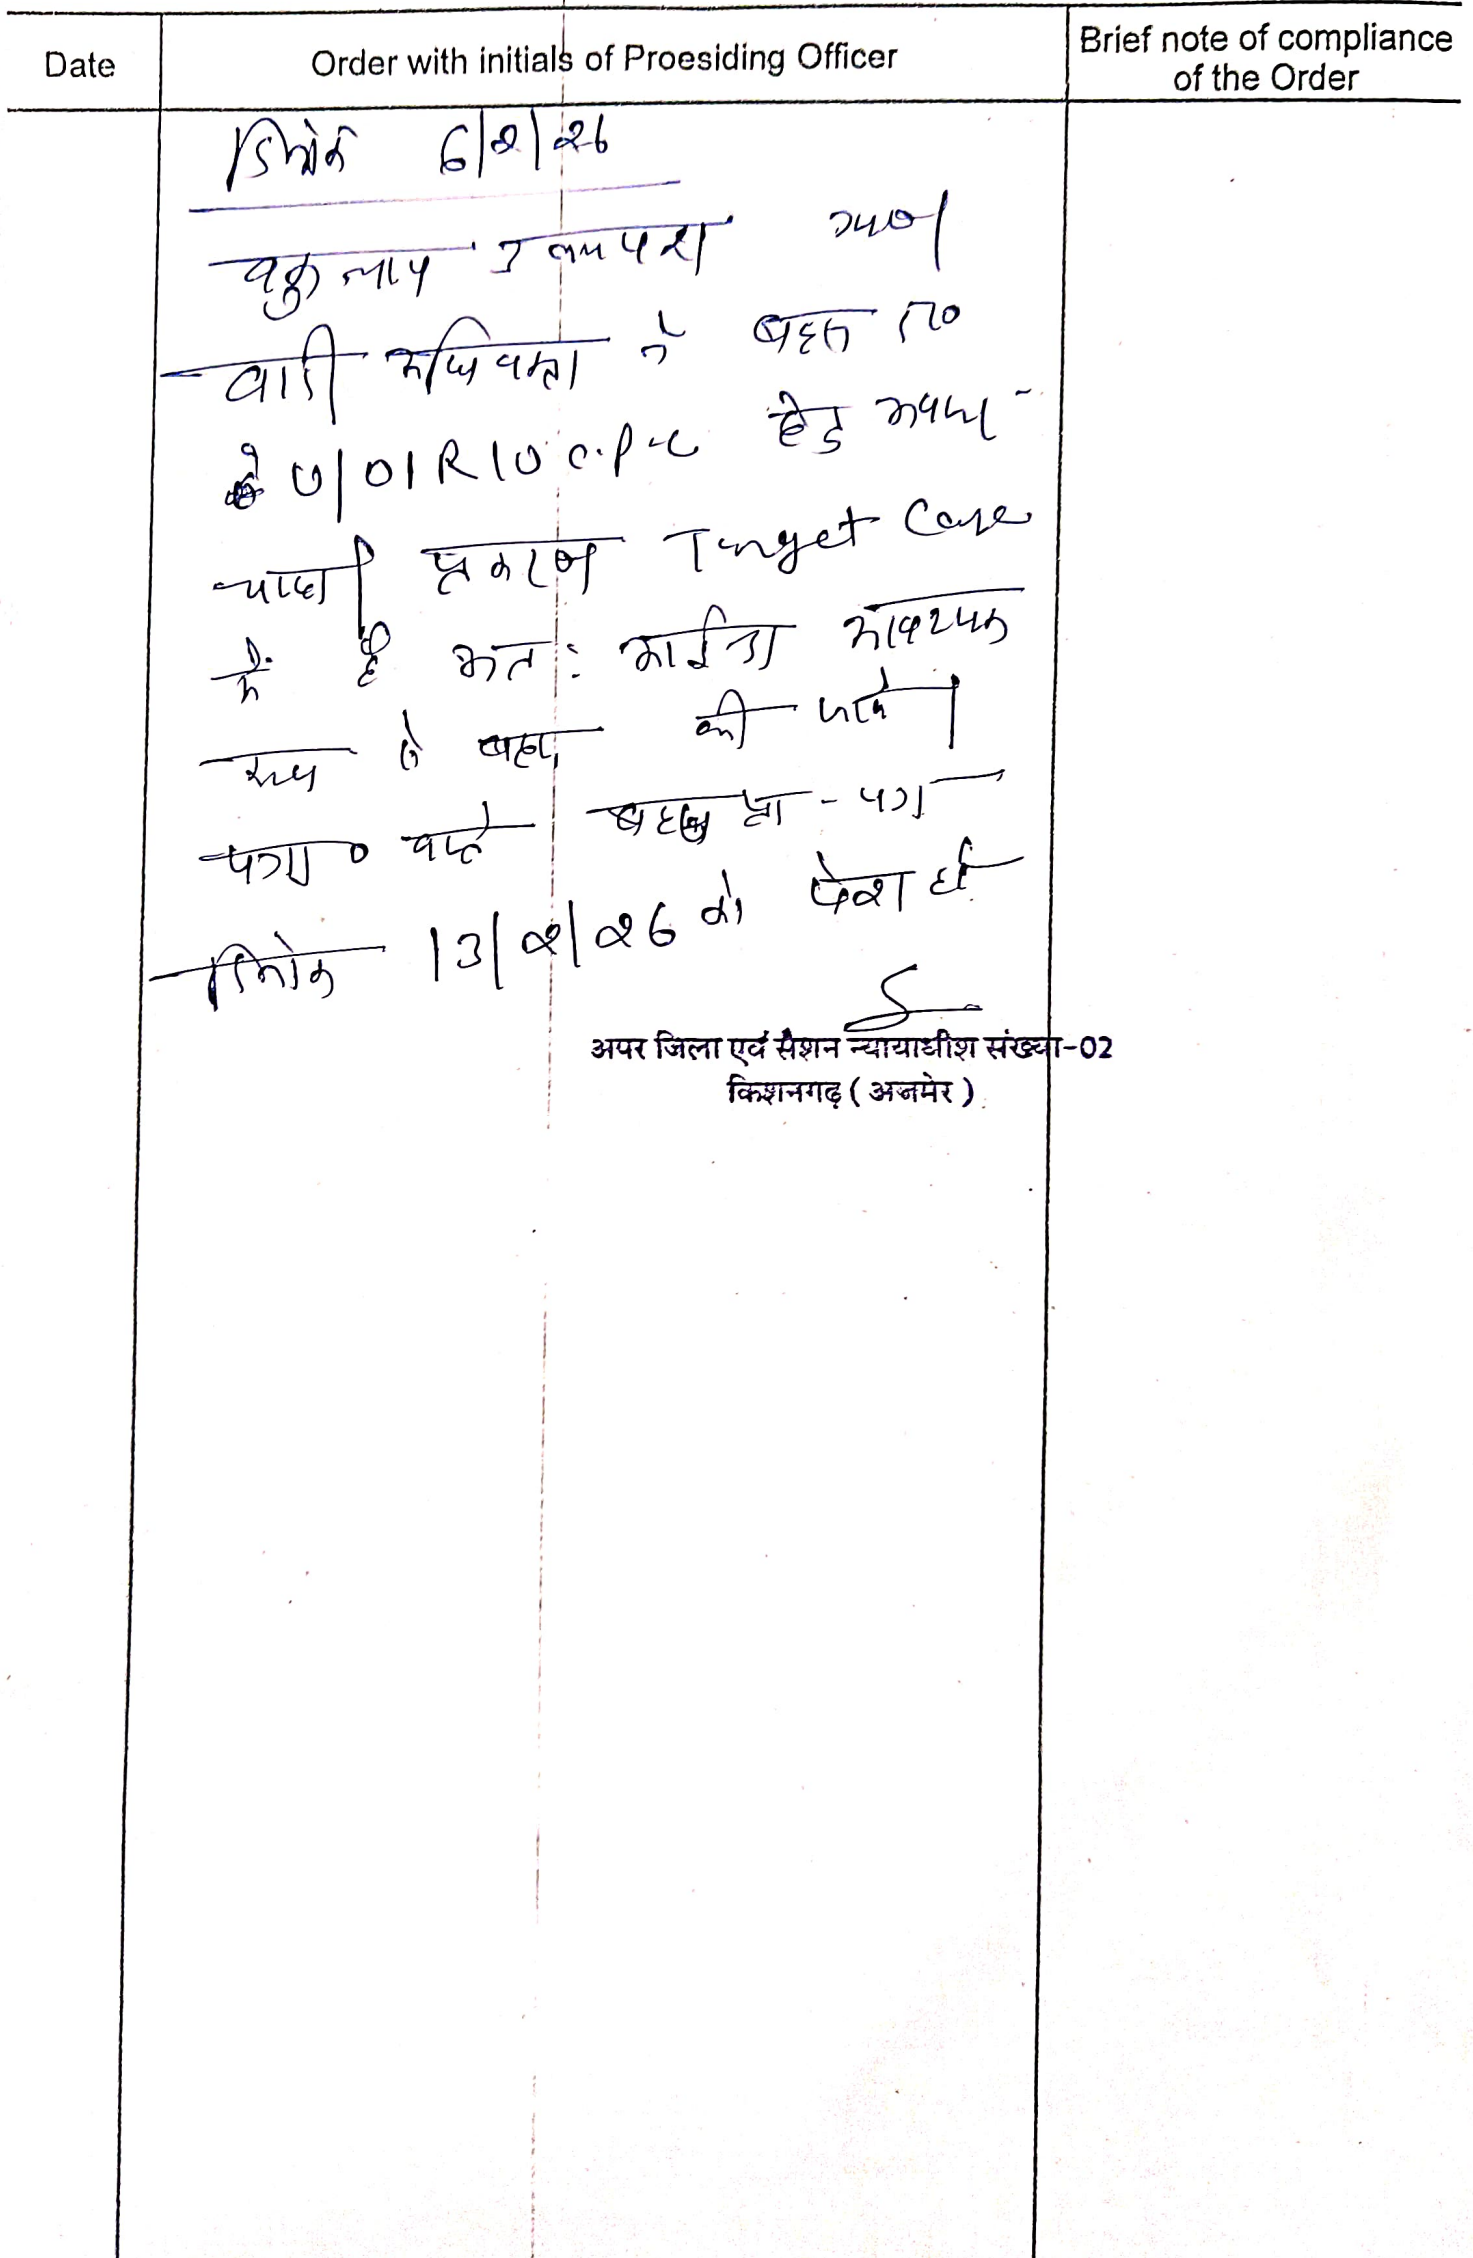 Date
Order with initials of Proesiding Officer
Brief note of compliance
of the Order
दिनांक 6/2/26
वकुलाय उभयपक्ष
वादी अधिवक्ता ने बहस प्रा०
U/O1R10 C.P.C हेतु अवसर
चाहा प्रकरण Target Case
में है अतः आईन्दा आवश्यक
रूप से बहस की जावे।
पत्रा० वास्ते बहस प्रा-पत्र
दिनांक 13/2/26 को पेश हो
अपर जिला एवं सैशन न्यायाधीश संख्या-02
किशनगढ़ (अजमेर)